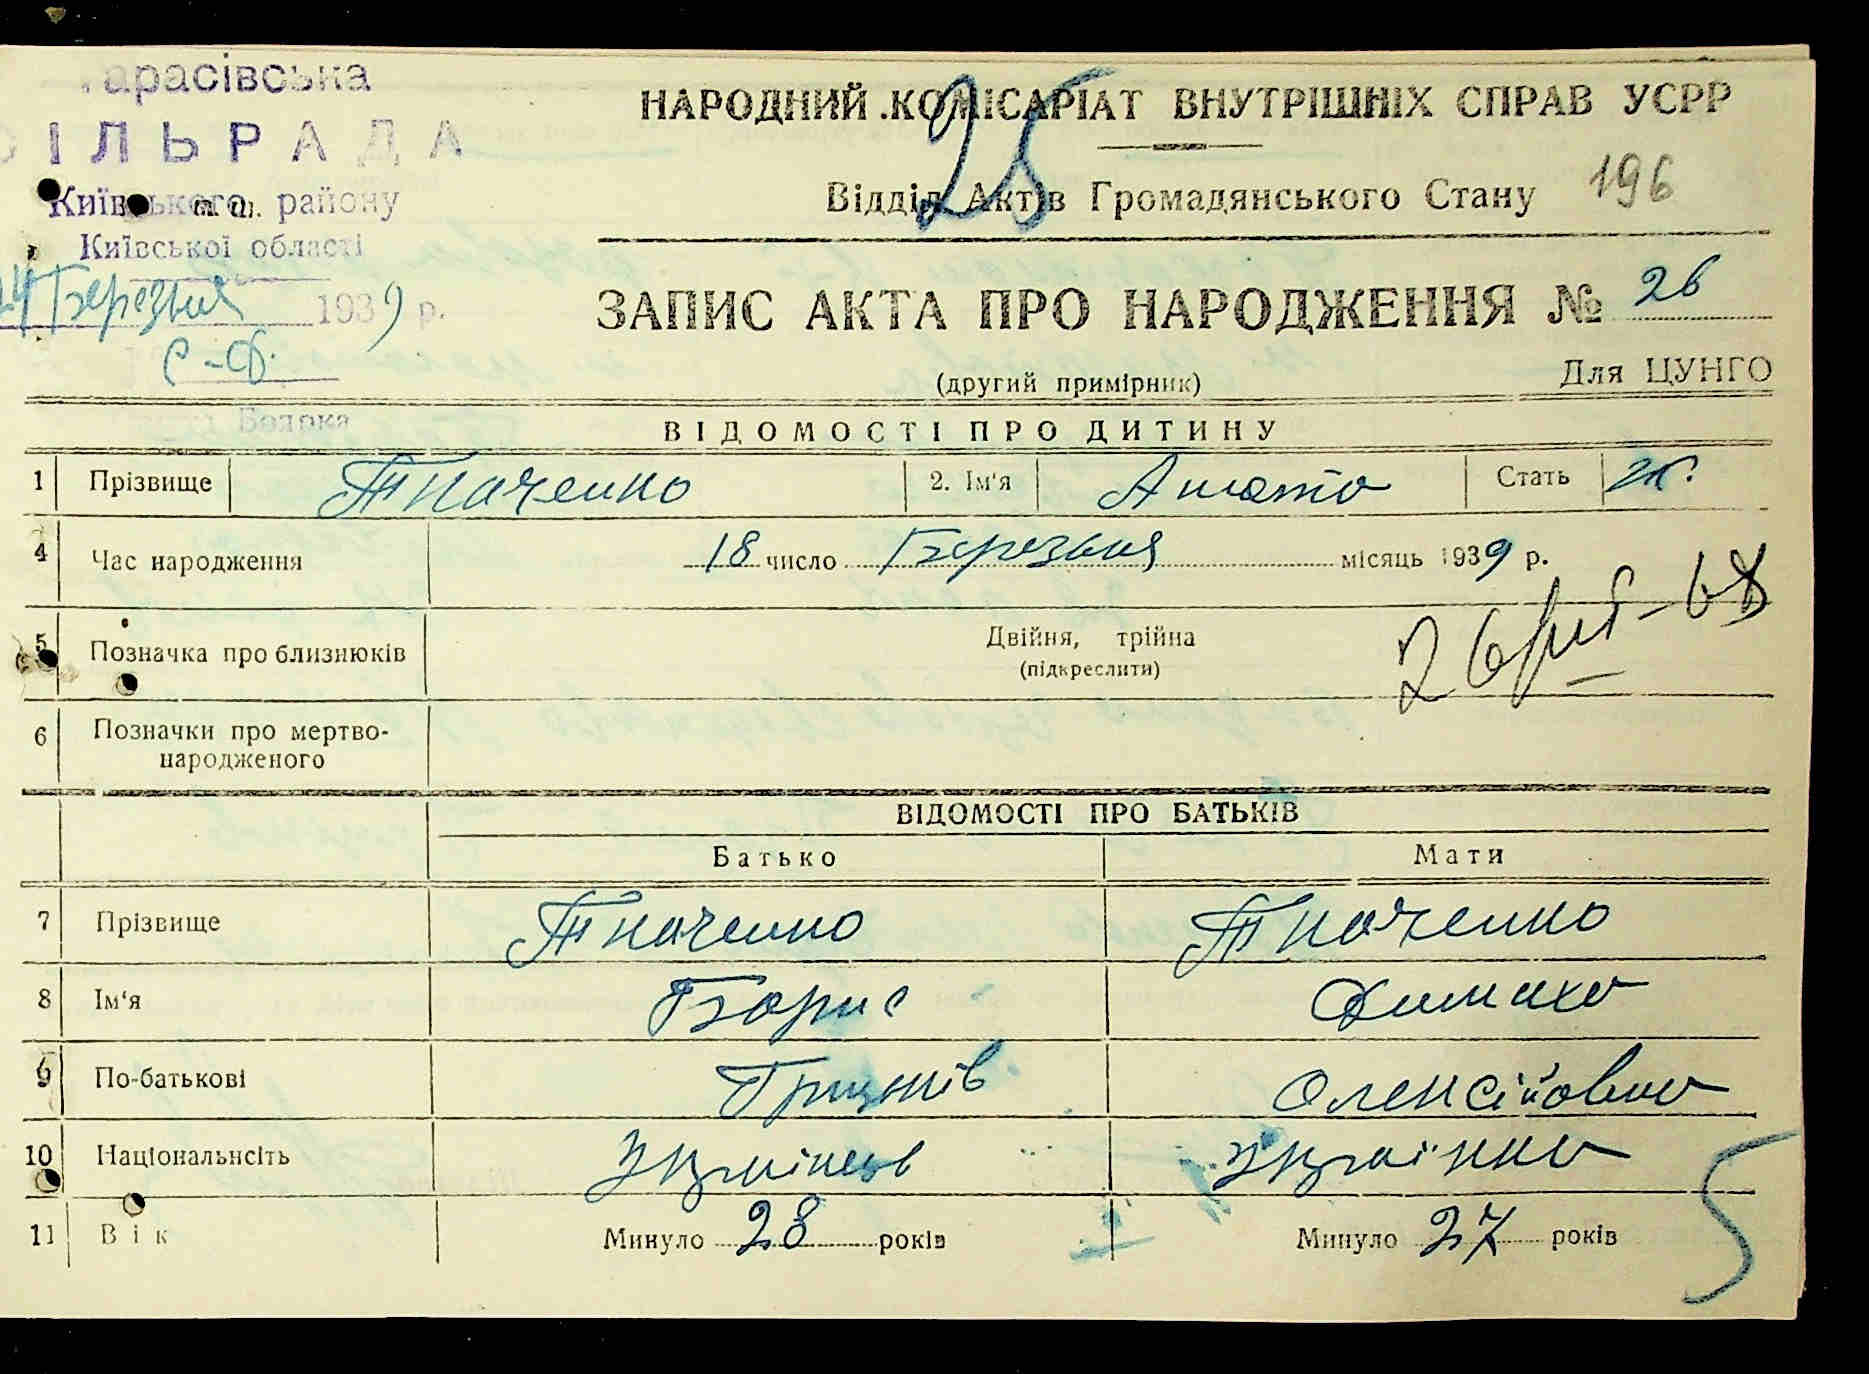 Тарасівська
СІЛЬРАДА
Київського району
Київської області
24 Березня 1939 р.
с-ф.
Боярка
25
НАРОДНИЙ КОМІСАРІАТ ВНУТРІШНІХ СПРАВ УСРР
Відділ Актів Громадянського Стану 196
ЗАПИС АКТА ПРО НАРОДЖЕННЯ № 26
(другий примірник) Для ЦУНГО
ВІДОМОСТІ ПРО ДИТИНУ
1 Прізвище Ткаченко 2. Ім'я Стать ж.
4 Час народження 18 число Березня місяць 1939 р.
5 Позначка про близнюків Двійня, трійна
(підкреслити)
6 Позначки про мертво-
народженого
ВІДОМОСТІ ПРО БАТЬКІВ
Батько Мати
7 Прізвище Ткаченко Ткаченко
8 Ім'я Борис
9 По-батькові Грицьків Олексійовна
10 Національнсіть Українець Українка
11 Вік Минуло 28 років Минуло 27 років
5